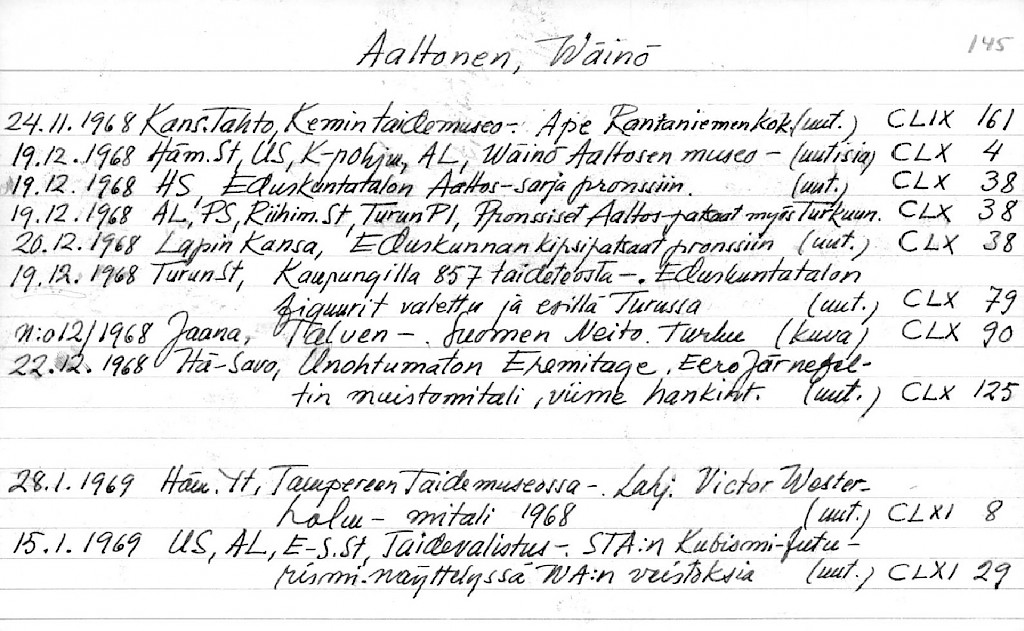 Aaltonen, Wäinö 145
24.11.1968 Kans.Tahto, Kemin taidemuseo-. Ape Rantaniemen kok. (uut.) CLIX 161
19.12.1968 Häm.St, US, K-pohju, AL, Wäinö Aaltosen museo - (uutisia) CLX 4
19.12.1968 HS, Eduskuntatalon Aaltos-sarja pronssiin. (uut.) CLX 38
19.12.1968 AL, PS, Riihim.St, TurunPl, Pronssiset Aaltos-patsaat myös Turkuun. CLX 38
20.12.1968 Lapin Kansa, Eduskunnan kipsipatsaat pronssiin (uut.) CLX 38
19.12.1968 TurunSt, Kaupungilla 857 taideteosta-. Eduskuntatalon
figuurit valettu ja esillä Turussa (uut.) CLX 79
n:o 12/1968 Jaana, Talven -. Suomen Neito. Turku (kuva) CLX 90
22.12.1968 Itä-Savo, Unohtumaton Eremitage. Eero Järnefel-
tin muistomitali, viime hankint. (uut.) CLX 125
28.1.1969 Häm. St, Tampereen Taidemuseossa-. Lahj. Victor Wester-
holm - mitali 1968 (uut.) CLXI 8
15.1.1969 US, AL, E-S.St, Taidevalistus-. STA:n Kubismi-futu-
rismi-näyttelyssä WA:n veistoksia (uut.) CLXI 29